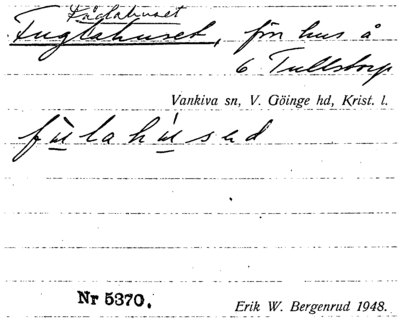 Fåglahuset
Fuglahuset, frn hus å
6 Tullstorp
Vankiva sn, V. Göinge hd, Krist. l.
fùlahúsəd
Nr 5370.
Erik W. Bergenrud 1948.